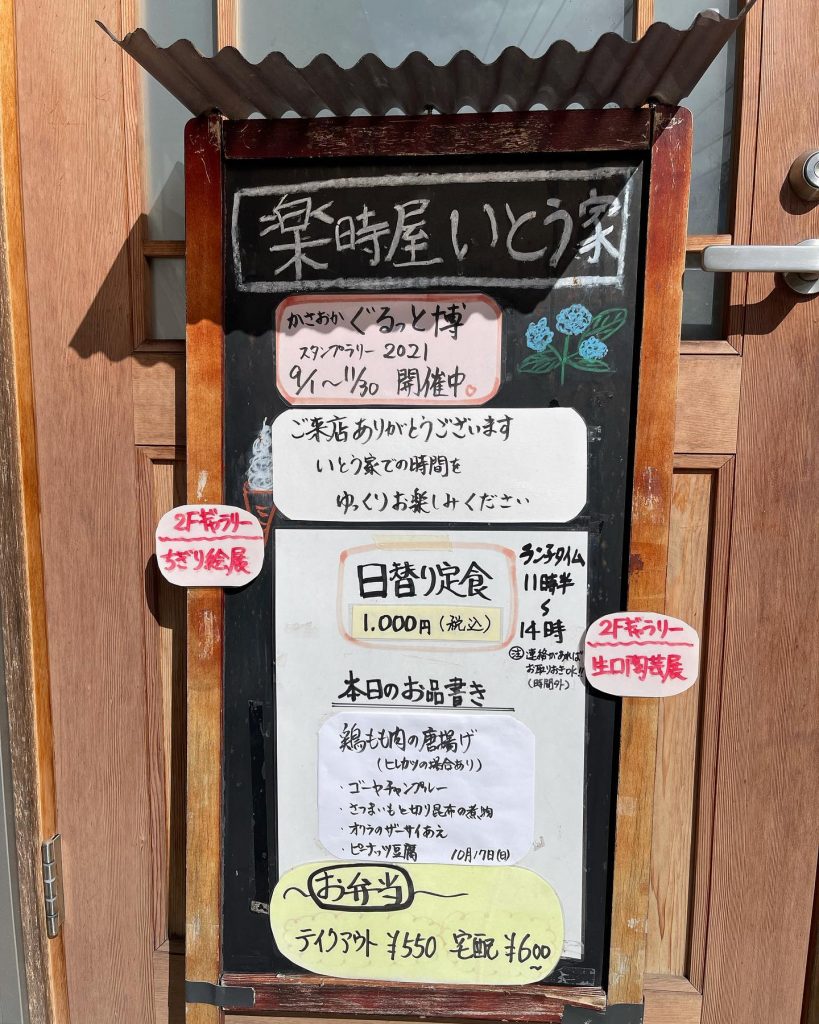 楽時屋 いとう家
かさおか ぐるっと博
スタンプラリー 2021
9/1〜11/30 開催中
ご来店ありがとうございます
いとう家での時間を
ゆっくりお楽しみください
2Fギャラリー
ちぎり絵展
日替り定食
1.000円(税込)
ランチタイム
11時半
〜
14時
注 連絡があれば
お取りおきOK!!
(時間外)
2Fギャラリー
生口陶芸展
本日のお品書き
鶏もも肉の唐揚げ
(ヒレカツの場合あり)
・ゴーヤチャンプルー
・さつまいもと切り昆布の煮物
・オクラのザーサイあえ
・ピーナッツ豆腐 10月17日(日)
〜お弁当〜
テイクアウト ¥550 宅配 ¥600〜